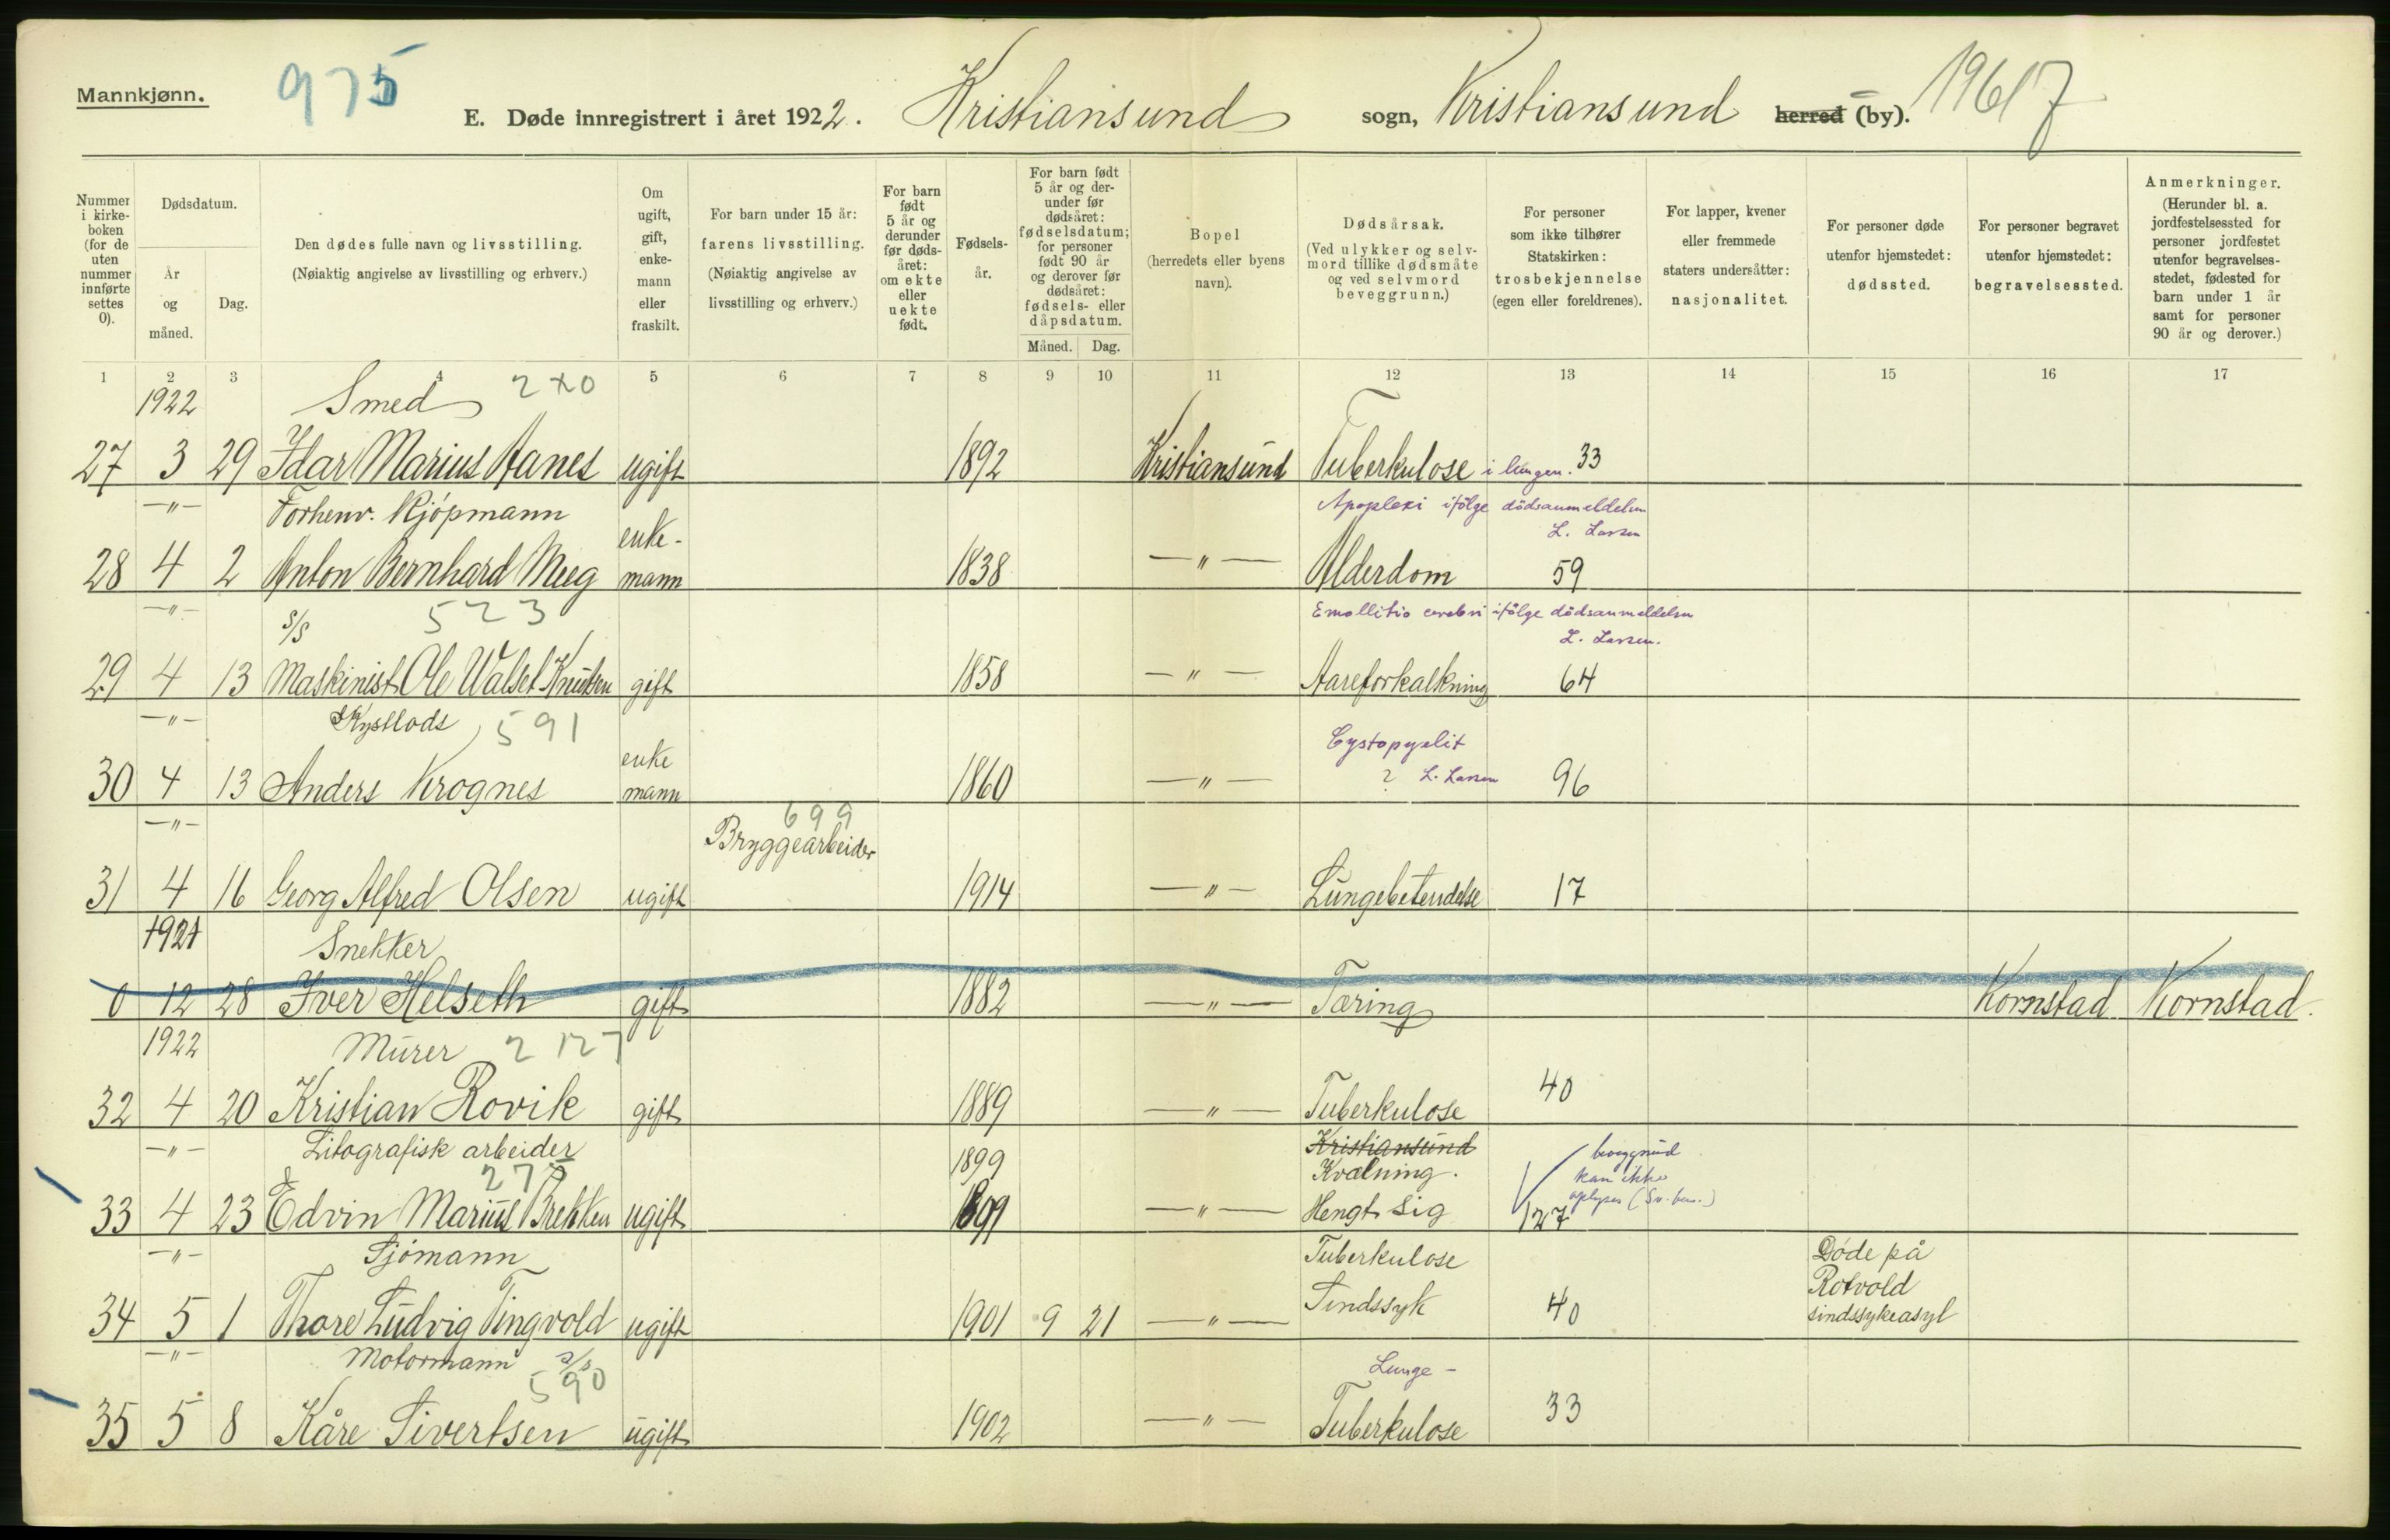 Mannkjønn.
975
E. Døde innregistrert i året 1922. Kristiansund sogn, Kristiansund herred (by). 1961 7
Nummer i kirke- boken (for de uten nummer innførte settes 0).
Dødsdatum.
År og måned.
Dag.
Den dødes fulle navn og livsstilling. (Nøiaktig angivelse av livsstilling og erhverv.)
Om ugift, gift, enke- mann eller fraskilt.
For barn under 15 år: farens livsstilling. (Nøiaktig angivelse av livsstilling og erhverv.)
For barn født 5 år og derunder før døds- året: om ekte eller uekte født.
Fødsels- år.
For barn født 5 år og der- under før dødsåret: fødselsdatum; for personer født 90 år og derover før dødsåret: fødsels- eller dåpsdatum.
Måned. Dag.
Bopel (herredets eller byens navn).
Dødsårsak. (Ved ulykker og selv- mord tillike dødsmåte og ved selvmord beveggrunn.)
For personer som ikke tilhører Statskirken: trosbekjennelse (egen eller foreldrenes).
For lapper, kvener eller fremmede staters undersåtter: nasjonalitet.
For personer døde utenfor hjemstedet: dødssted.
For personer begravet utenfor hjemstedet: begravelsessted.
Anmerkninger. (Herunder bl. a. jordfestelsessted for personer jordfestet utenfor begravelses- stedet, fødested for barn under 1 år samt for personer 90 år og derover.)
1 2 3 4 5 6 7 8 9 10 11 12 13 14 15 16 17
1922 Smed 2 x 0
27 3 29 Idar Marius Aanes ugift 1892 Kristiansund Tuberkulose i lungen. 33
—"— Forhenv. Kjøpmann enke- Apoplexi ifölge dödsanmeldelsen
L. Larsen
28 4 2 Anton Bernhard Meeg mann 1838 —"— Alderdom 59
—"— S/S 523 Emollitio cerebri ifölge dödsanmeldelsen
L. Larsen.
29 4 13 Maskinist Ole Walset Knutsen gift 1858 —"— Aareforkalkning 64
—"— Kystlods 591 enke Cystopyelit
? L. Larsen
30 4 13 Anders Krognes mann 1860 —"— 96
—"— 699
Bryggearbeider
31 4 16 Georg Alfred Olsen ugift 1914 —"— Lungebetendelse 17
1921 Snekker
0 12 28 Iver Helseth gift 1882 —"— Tæring Kornstad Kornstad.
1922 Murer 2 127
32 4 20 Kristian Rovik gift 1889 —"— Tuberkulose 40
—"— Litografisk arbeider 1899 Kristiansund
275 Kvælning. kan ikke
33 4 23 Edvin Marius Brekken ugift 1899 —"— Hengt sig 127
—"— Sjømann Tuberkulose Døde på
Rotvold
34 5 1 Thore Ludvig Tingvold ugift 1901 9 21 —"— Sindssyk 40 sindssykeasyl
—"— Motormann S/S 590 Lunge-
35 5 8 Kåre Sivertsen ugift 1902 —"— Tuberkulose 33